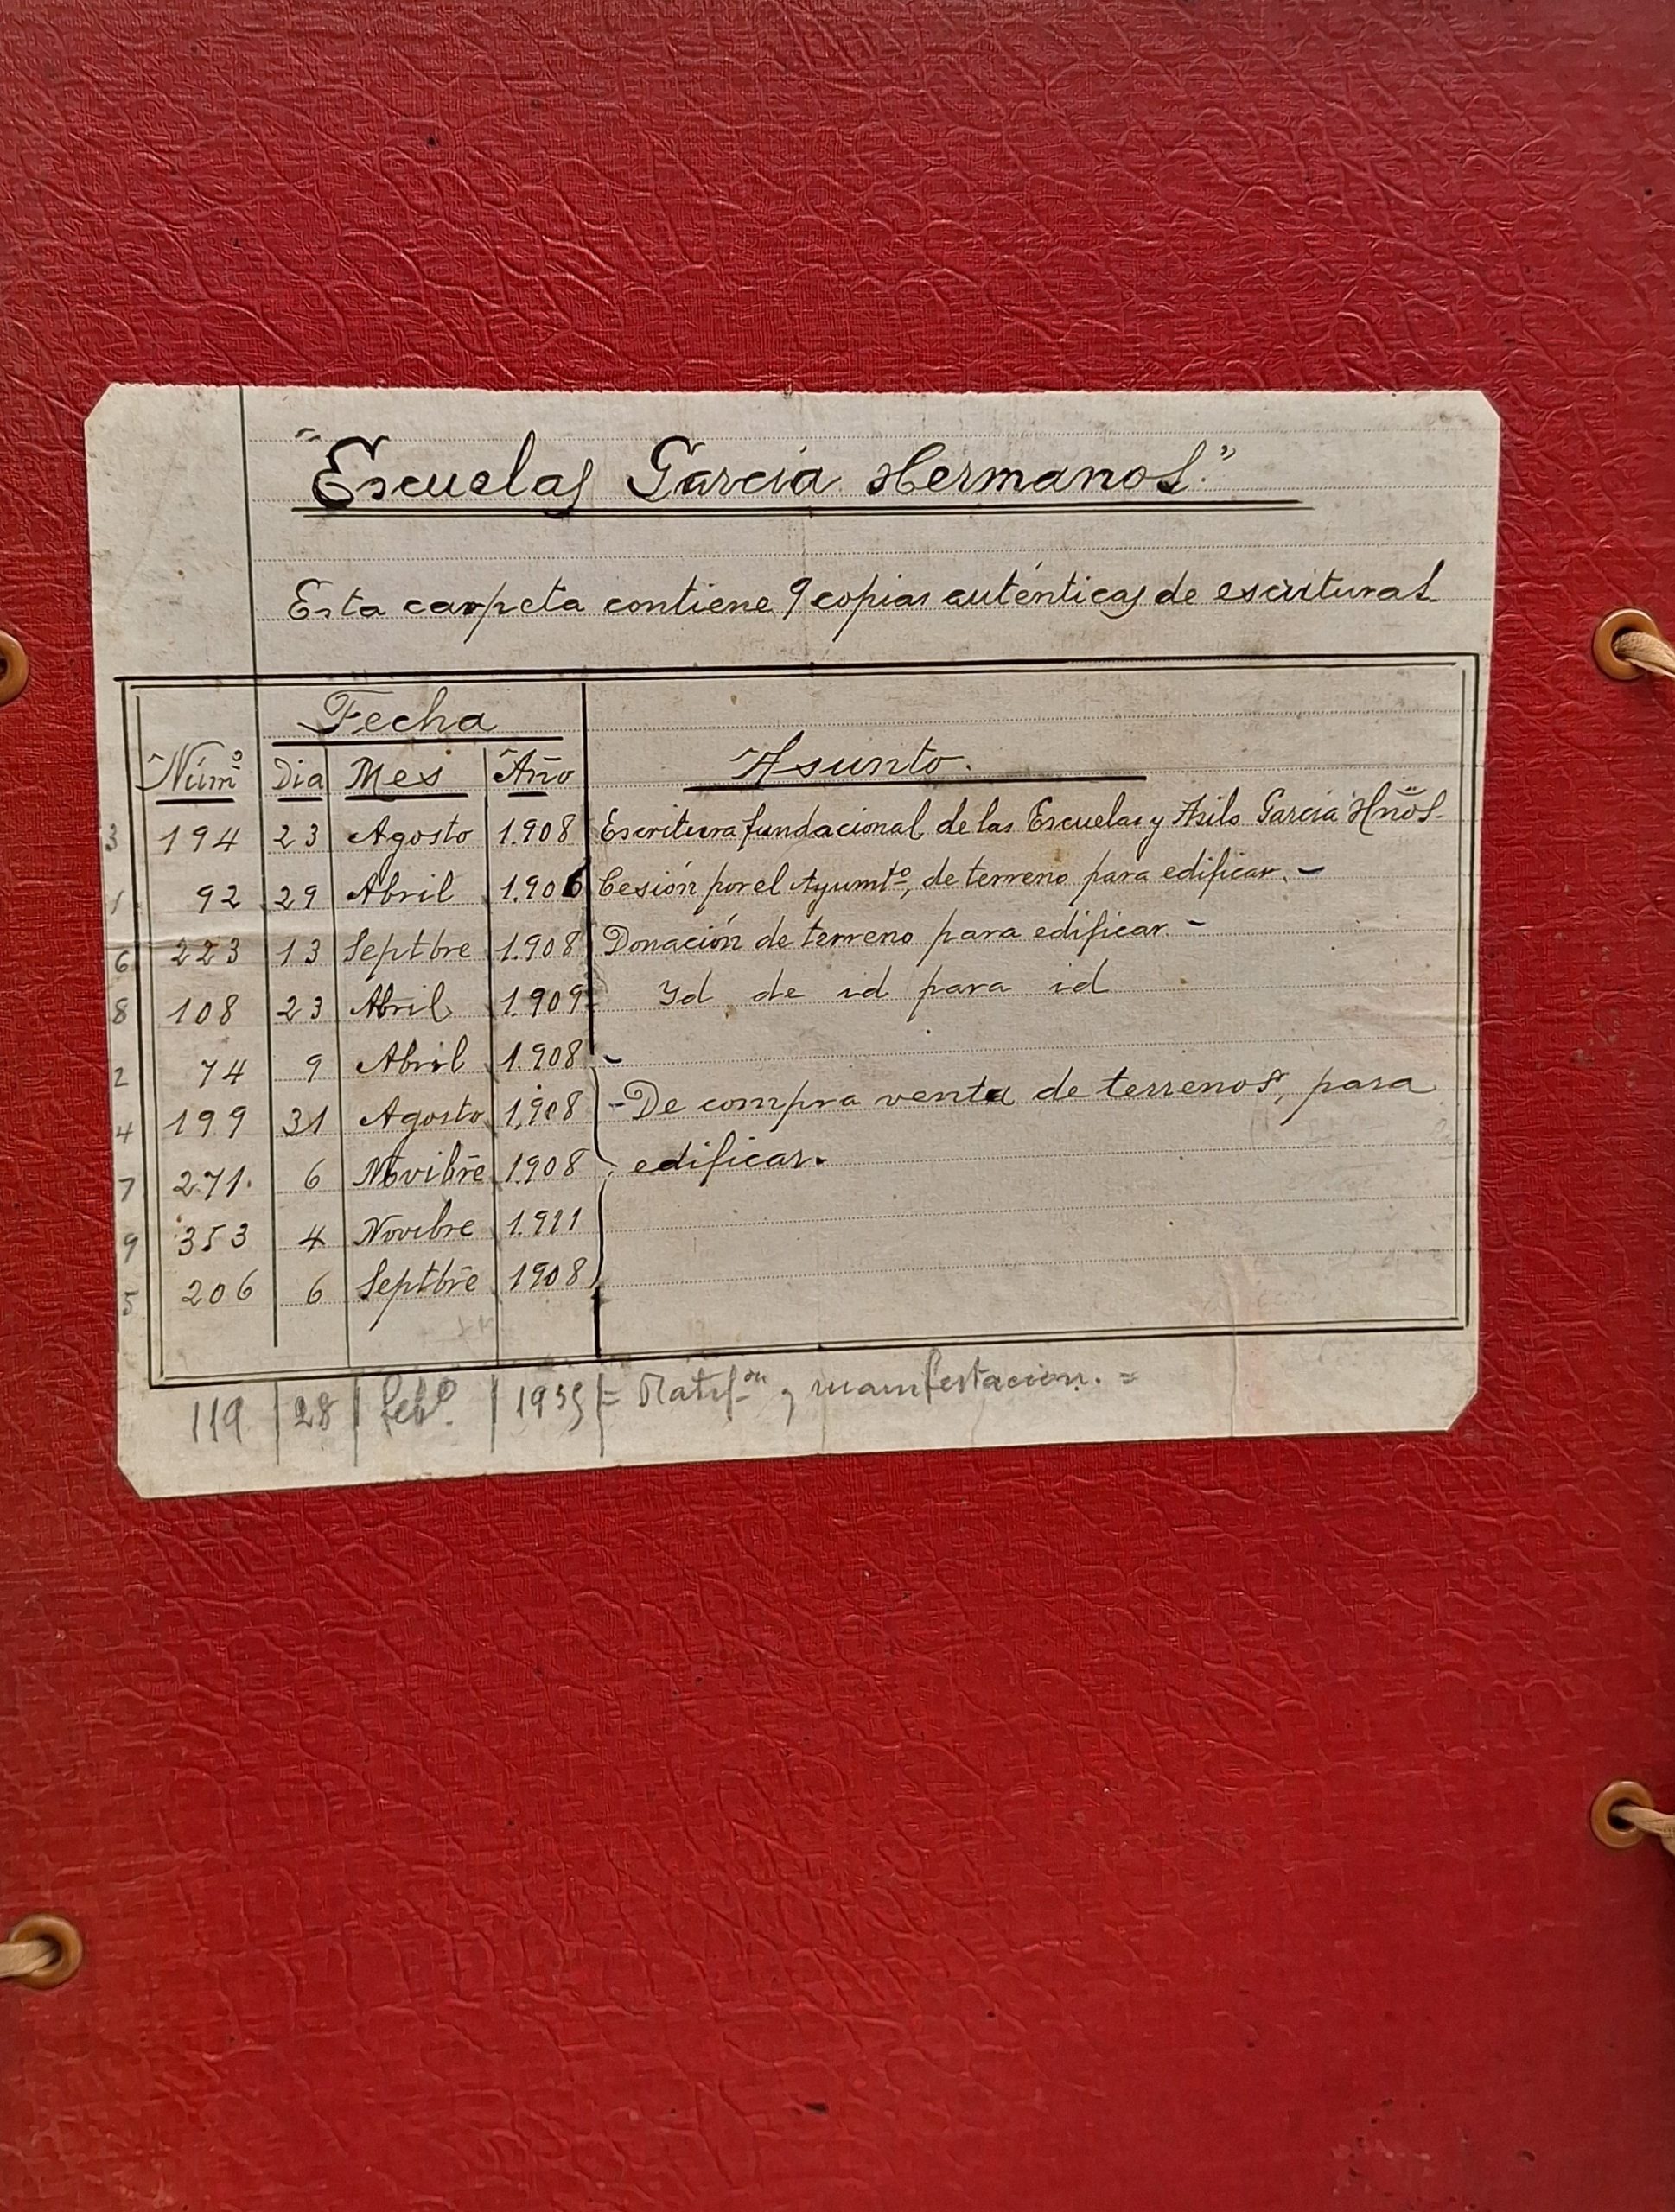 "Escuelas García Hermanos."
Esta carpeta contiene 9 copias auténticas de escrituras
Fecha
Núm.º Dia Mes Año Asunto.
3 194 23 Agosto 1.908 Escritura fundacional de las Escuelas y Asilo García Hños.
1 92 29 Abril 1.906 Cesión por el Ayumtº, de terreno para edificar. -
6 223 13 Septbre 1.908 Donación de terreno para edificar -
8 108 23 Abril 1.909 Yd de id para id
2 74 9 Abril 1.908 -
4 199 31 Agosto 1.908 - De compra venta de terrenos, para
7 271. 6 Novibre 1908 edificar.
9 353 4 Novbre 1.911
5 206 6 Septbre 1908
119 28 febº. 1935 = y manifestacion. =